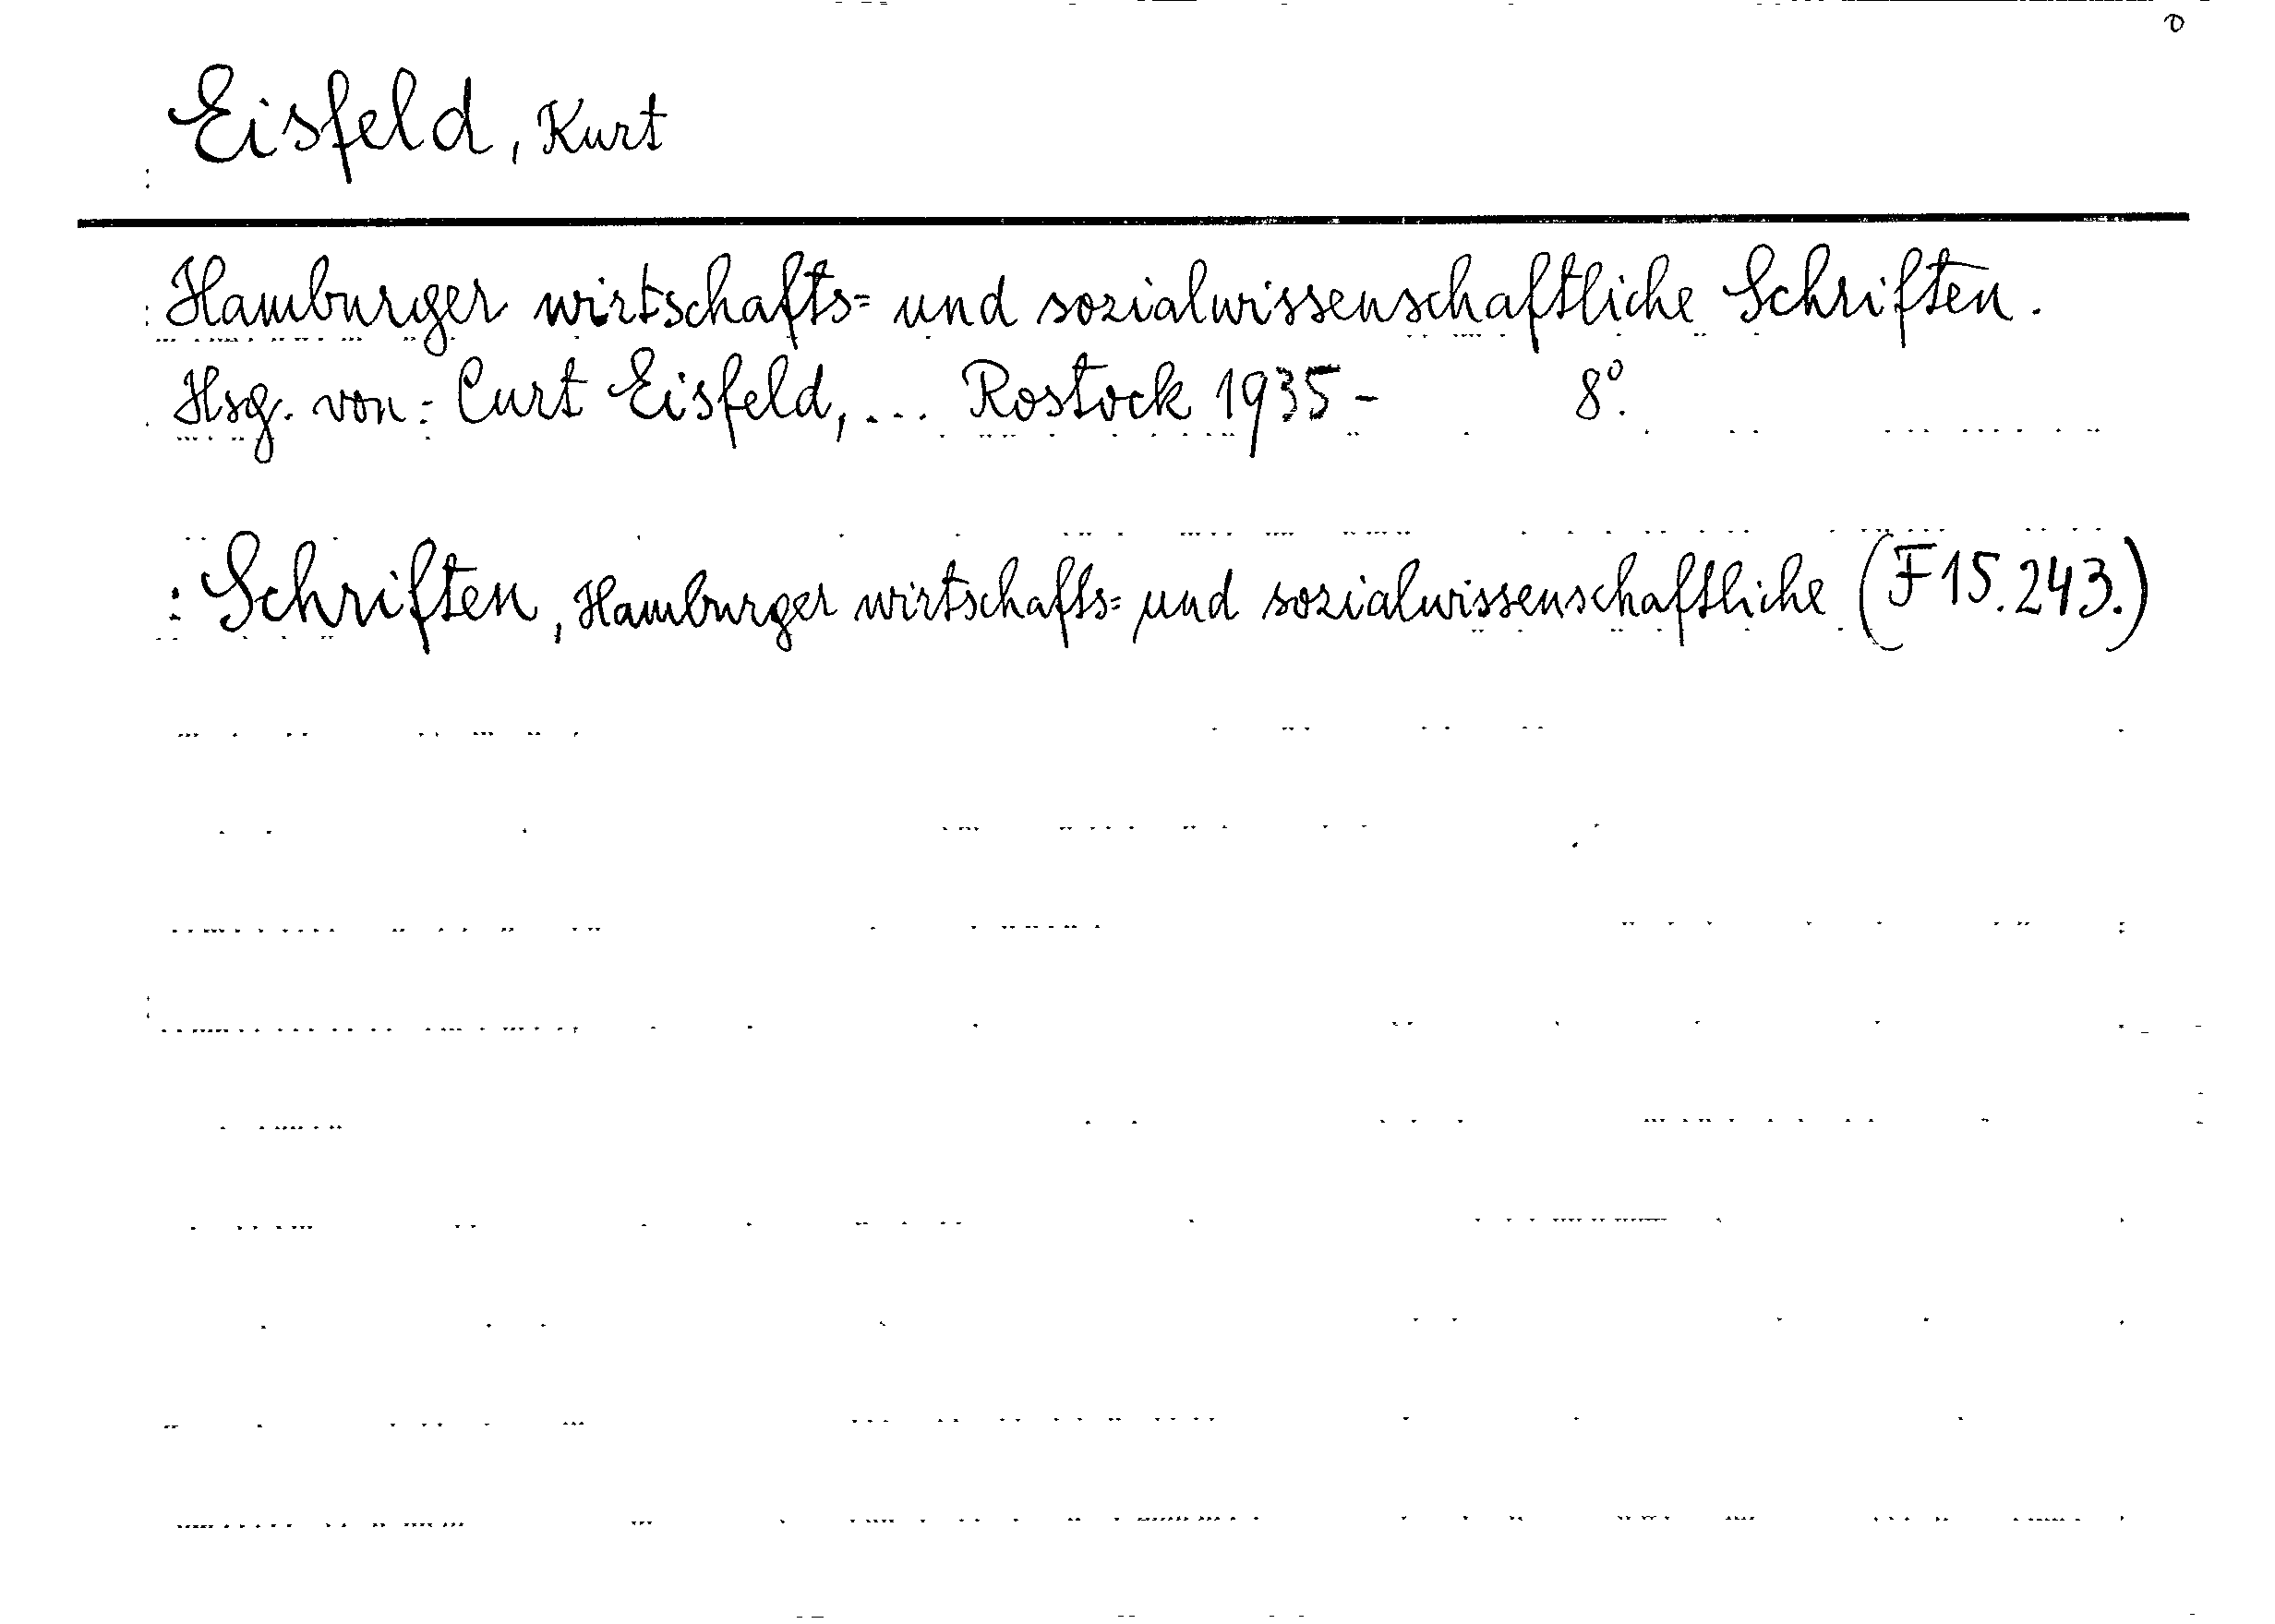 Eisfeld, Kurt
Hamburger wirtschafts= und sozialwissenschaftliche Schriften.
Hsg. von: Curt Eisfeld, ... Rostock 1935- 8°.
: Schriften, Hamburger wirtschafts= und sozialwissenschaftliche (F 15.243.)